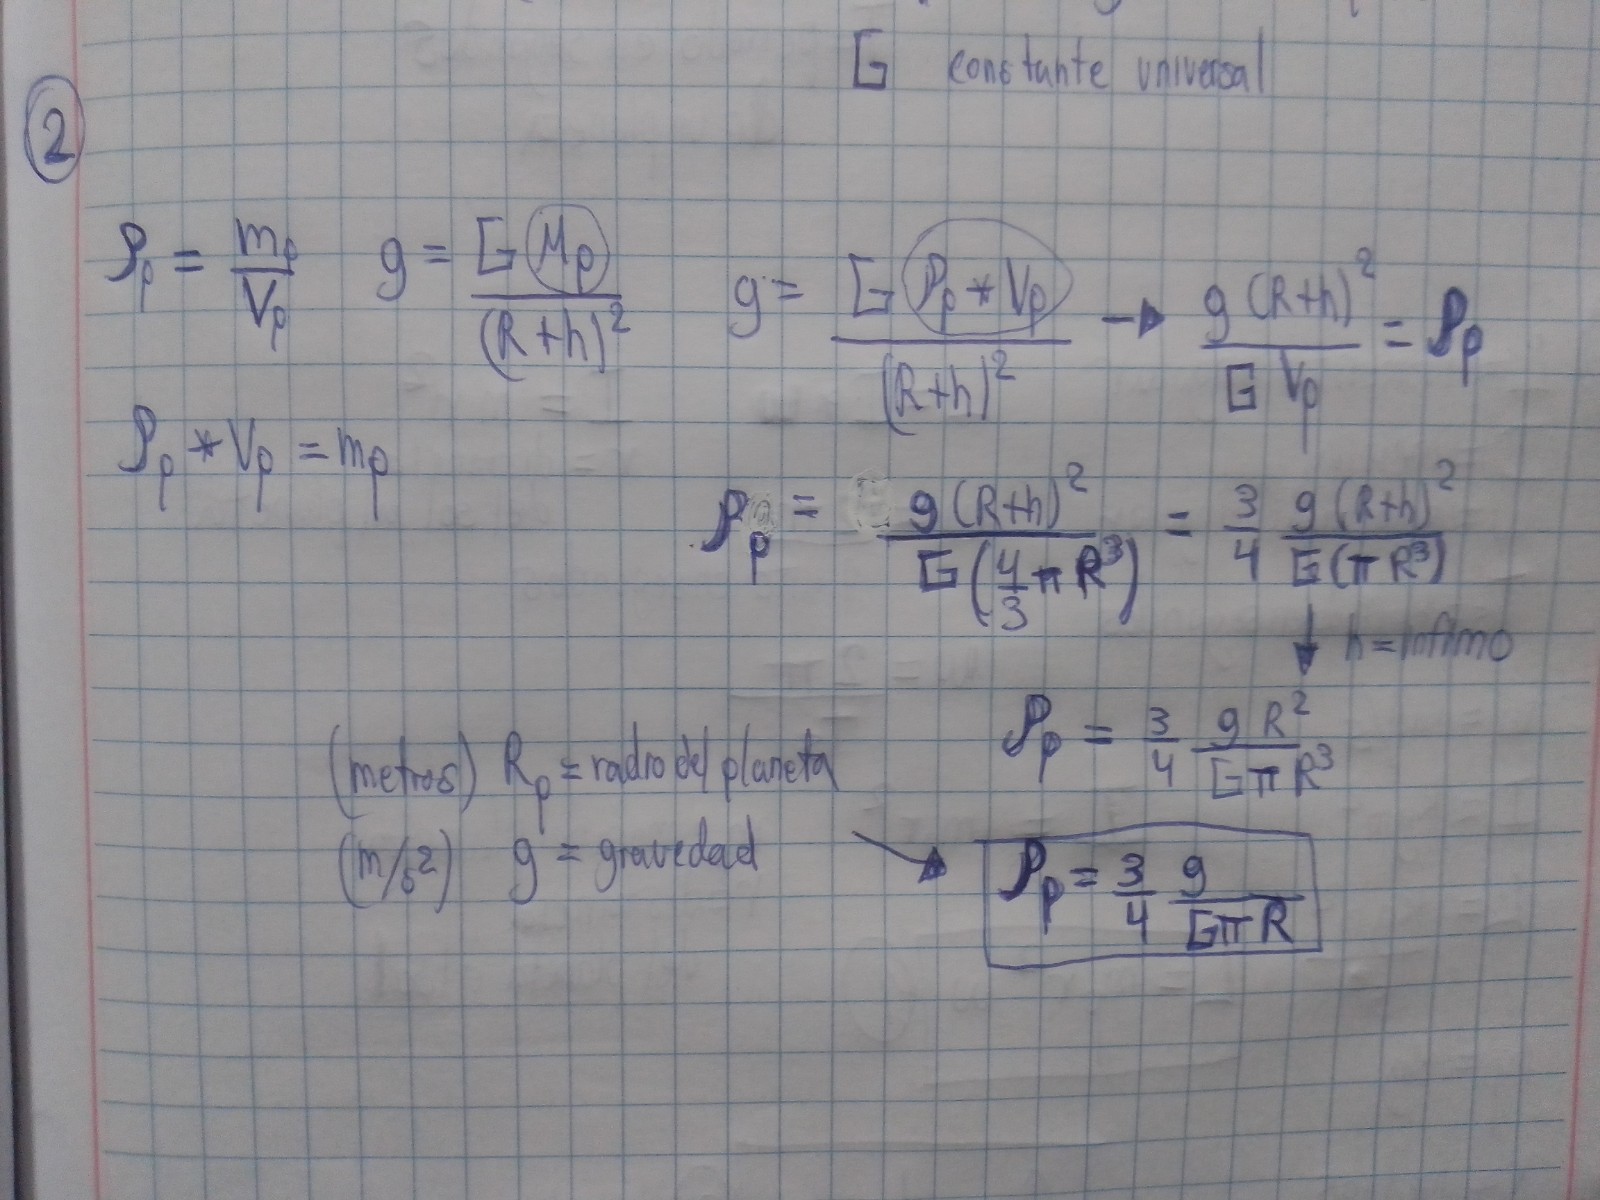 G constante universal
2
ρp = mp/Vp g = G Mp/(R+h)² g = G ρp * Vp/(R+h)² → g (R+h)²/G Vp = ρp
ρp * Vp = mp
ρp = g (R+h)²/G(4/3 π R³) = 3/4 g (R+h)²/G(π R³)
↓ h = infimo
ρp = 3/4 g R²/GπR³
(metros) Rp = radio del planeta
(m/s²) g = gravedad
→ ρp = 3/4 g/GπR